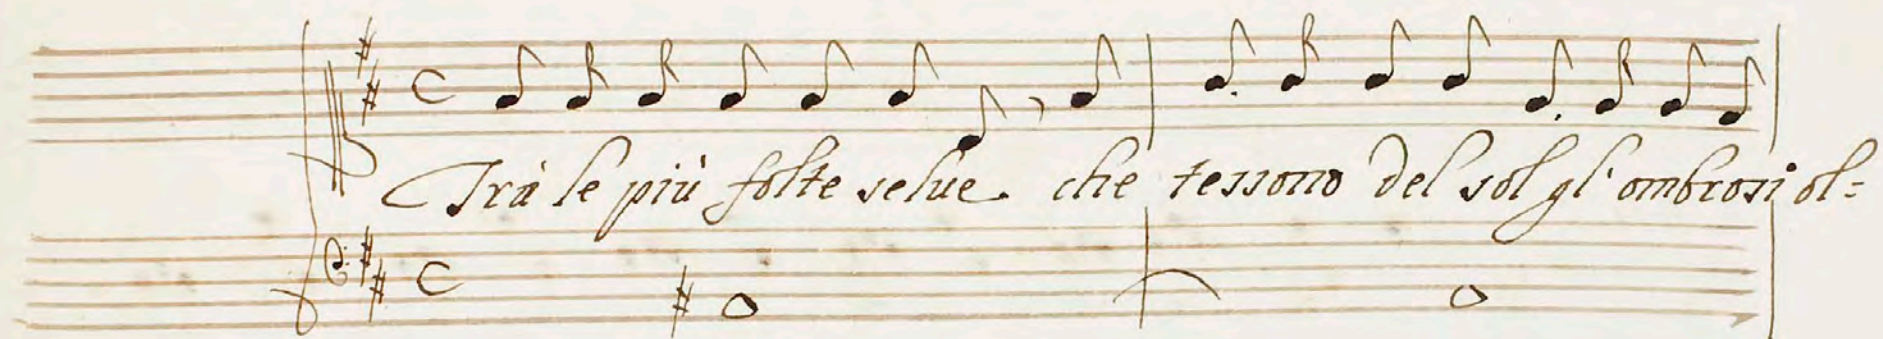 Trà le più folte selue che tessono del sol gl'ombrosi ol=